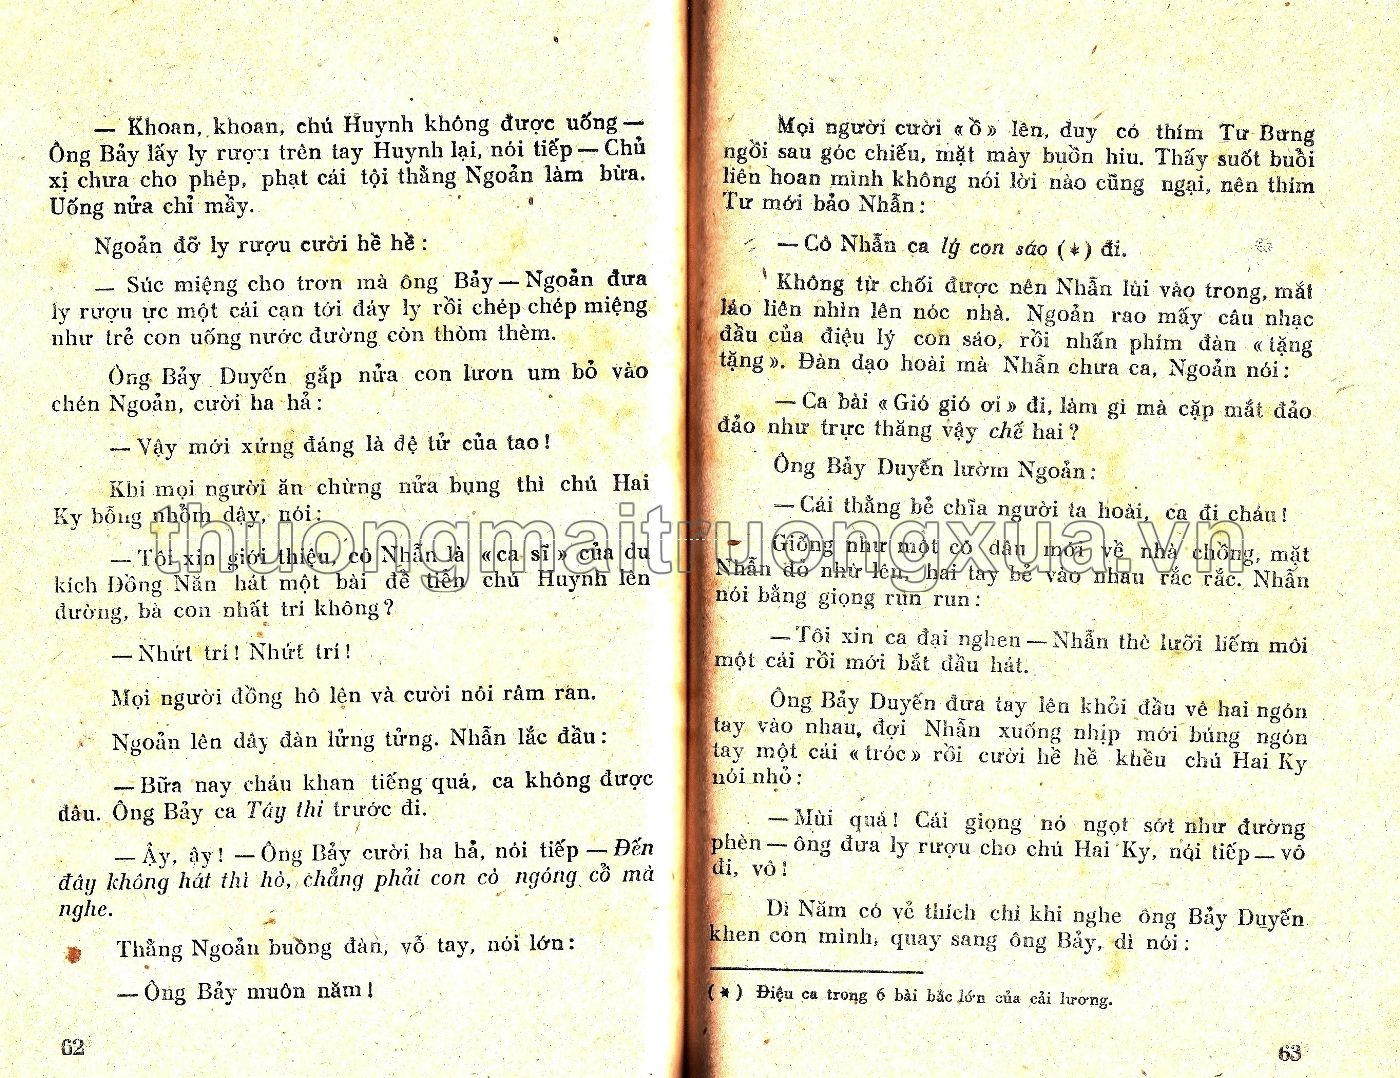 — Khoan, khoan, chú Huynh không được uống —
Ông Bảy lấy ly rượu trên tay Huynh lại, nói tiếp — Chủ
xị chưa cho phép, phạt cái tội thằng Ngoản làm bừa.
Uống nửa chỉ mầy.
Ngoản đỡ ly rượu cười hề hề :
— Súc miệng cho trơn mà ông Bảy — Ngoản đưa
ly rượu ực một cái cạn tới đáy ly rồi chép chép miệng
như trẻ con uống nước đường còn thòm thèm.
Ông Bảy Duyến gắp nửa con lươn um bỏ vào
chén Ngoản, cười ha hả :
— Vậy mới xứng đáng là đệ tử của tao !
Khi mọi người ăn chừng nửa bụng thì chú Hai
Ky bỗng nhổm dậy, nói :
— Tôi xin giới thiệu, cô Nhẫn là « ca sĩ » của du
kích Đồng Năn hát một bài để tiễn chú Huynh lên
đường, bà con nhất trí không ?
— Nhứt trí ! Nhứt trí !
Mọi người đồng hô lên và cười nói râm ran.
Ngoản lên dây đàn lửng tửng. Nhẫn lắc đầu :
— Bữa nay cháu khan tiếng quá, ca không được
đâu. Ông Bảy ca Tây thi trước đi.
— Ậy, ậy ! — Ông Bảy cười ha hả, nói tiếp — Đến
đây không hát thì hò, chẳng phải con cò ngóng cổ mà
nghe.
Thằng Ngoản buông đàn, vỗ tay, nói lớn :
— Ông Bảy muôn năm !
62
Mọi người cười « ồ » lên, duy có thím Tư Bưng
ngồi sau góc chiếu, mặt mày buồn hiu. Thấy suốt buổi
liên hoan mình không nói lời nào cũng ngại, nên thím
Tư mới bảo Nhẫn :
— Cô Nhẫn ca lý con sáo (*) đi.
Không từ chối được nên Nhẫn lùi vào trong, mắt
láo liên nhìn lên nóc nhà. Ngoản rao mấy câu nhạc
đầu của điệu lý con sáo, rồi nhấn phím đàn « tặng
tặng ». Đàn dạo hoài mà Nhẫn chưa ca, Ngoản nói :
— Ca bài « Gió gió ơi » đi, làm gì mà cặp mắt đảo
đảo như trực thăng vậy chế hai ?
Ông Bảy Duyến lườm Ngoản :
— Cái thằng bẻ chĩa người ta hoài, ca đi cháu !
Giống như một cô dâu mới về nhà chồng, mặt
Nhẫn đỏ nhừ lên, hai tay bẻ vào nhau rắc rắc. Nhẫn
nói bằng giọng run run :
— Tôi xin ca đại nghen — Nhẫn thè lưỡi liếm môi
một cái rồi mới bắt đầu hát.
Ông Bảy Duyến đưa tay lên khỏi đầu vê hai ngón
tay vào nhau, đợi Nhẫn xuống nhịp mới búng ngón
tay một cái « tróc » rồi cười hề hề khều chú Hai Ky
nói nhỏ :
— Mùi quá ! Cái giọng nó ngọt sớt như đường
phèn — ông đưa ly rượu cho chú Hai Ky, nói tiếp — vô
đi, vô !
Dì Năm có vẻ thích chí khi nghe ông Bảy Duyến
khen con mình, quay sang ông Bảy, dì nói :
(*) Điệu ca trong 6 bài bắc lớn của cải lương.
63
thuongmaitruongxua.vn